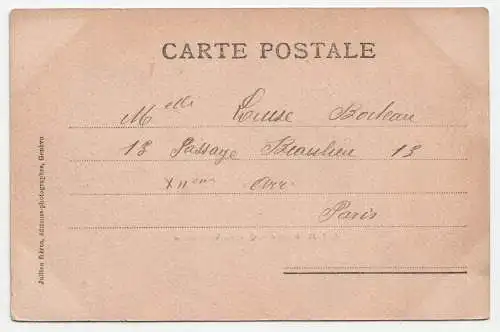 CARTE POSTALE
Melle Louise Boileau
13 Passage Beaulieu 13
XIIème Arr
Paris
Jullien frères, éditeurs-photographes, Genève